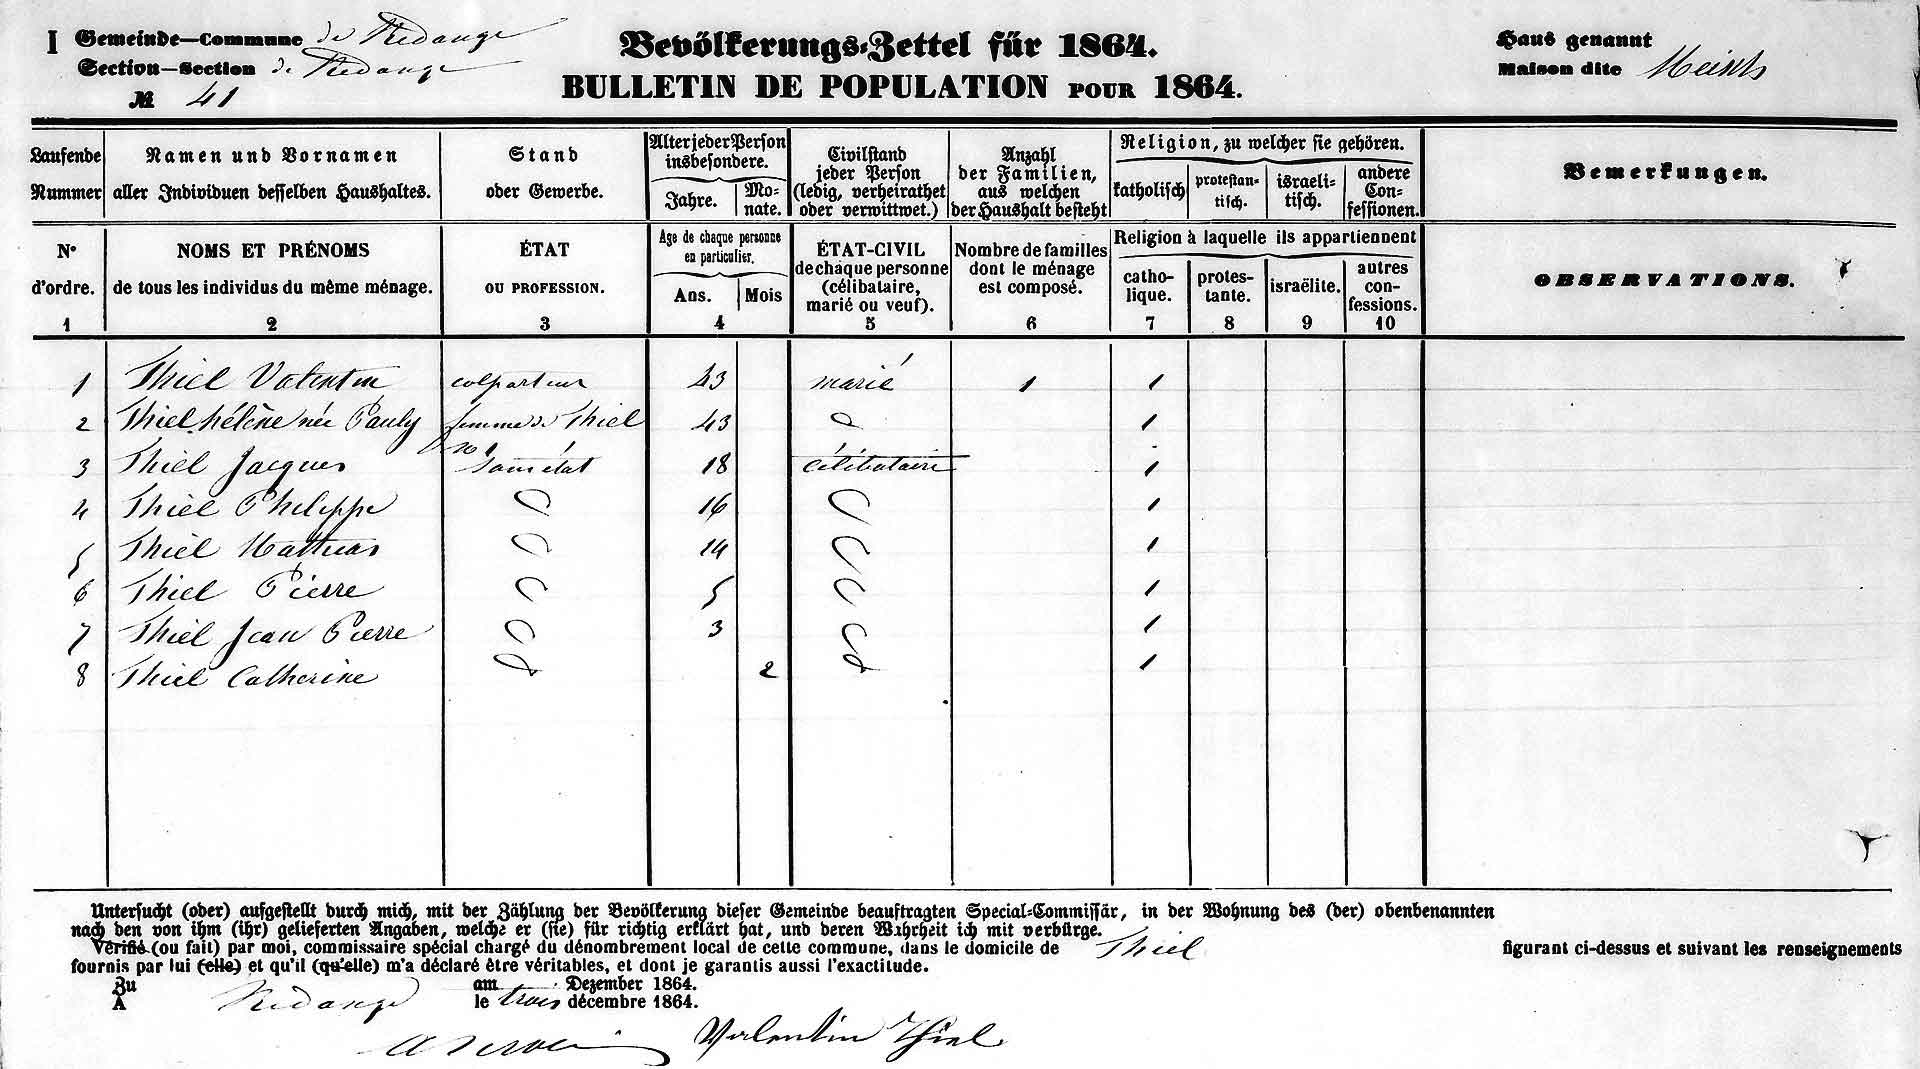 I Gemeinde—Commune de Redange
Section—Section de Redange
№ 41
Bevölkerungs-Zettel für 1864.
BULLETIN DE POPULATION POUR 1864.
Haus genannt
Maison dite
Laufende Nummer
Namen und Vornamen aller Individuen desselben Haushaltes.
Stand oder Gewerbe.
Alter jeder Person insbesondere.
Jahre.
Monate.
Civilstand jeder Person (ledig, verheirathet oder verwittwet.)
Anzahl der Familien, aus welchen der Haushalt besteht
Religion, zu welcher sie gehören.
katholisch
protestan-tisch.
israeli-tisch.
andere Con-fessionen.
Bemerkungen.
N° d'ordre.
NOMS ET PRÉNOMS de tous les individus du même ménage.
ÉTAT OU PROFESSION.
Age de chaque personne en particulier.
Ans.
Mois
ÉTAT-CIVIL de chaque personne (célibataire, marié ou veuf).
Nombre de familles dont le ménage est composé.
Religion à laquelle ils appartiennent
catho-lique.
protes-tante.
israëlite.
autres con-fessions.
OBSERVATIONS.
1 2 3 4 5 6 7 8 9 10
1 Thiel Valentin colporteur 43 marié 1 1
2 Thiel hélène née Pauly femme de Thiel 43 1
3 Thiel Jacques sans état 18 célibataire 1
4 Thiel Philippe 16 1
5 Thiel Mathias 14 1
6 Thiel Pierre 5 1
7 Thiel Jean Pierre 3 1
8 Thiel Catherine 2 1
Untersucht (oder) aufgestellt durch mich, mit der Zählung der Bevölkerung dieser Gemeinde beauftragten Special-Commissär, in der Wohnung des (der) obenbenannten
nach den von ihm (ihr) gelieferten Angaben, welche er (sie) für richtig erklärt hat, und deren Wahrheit ich mit verbürge.
Vérifié (ou fait) par moi, commissaire spécial chargé du dénombrement local de cette commune, dans le domicile de Thiel figurant ci-dessus et suivant les renseignements
fournis par lui (elle) et qu'il (qu'elle) m'a déclaré être véritables, et dont je garantis aussi l'exactitude.
Zu am Dezember 1864.
A Redange le trois décembre 1864.
Valentin Thiel